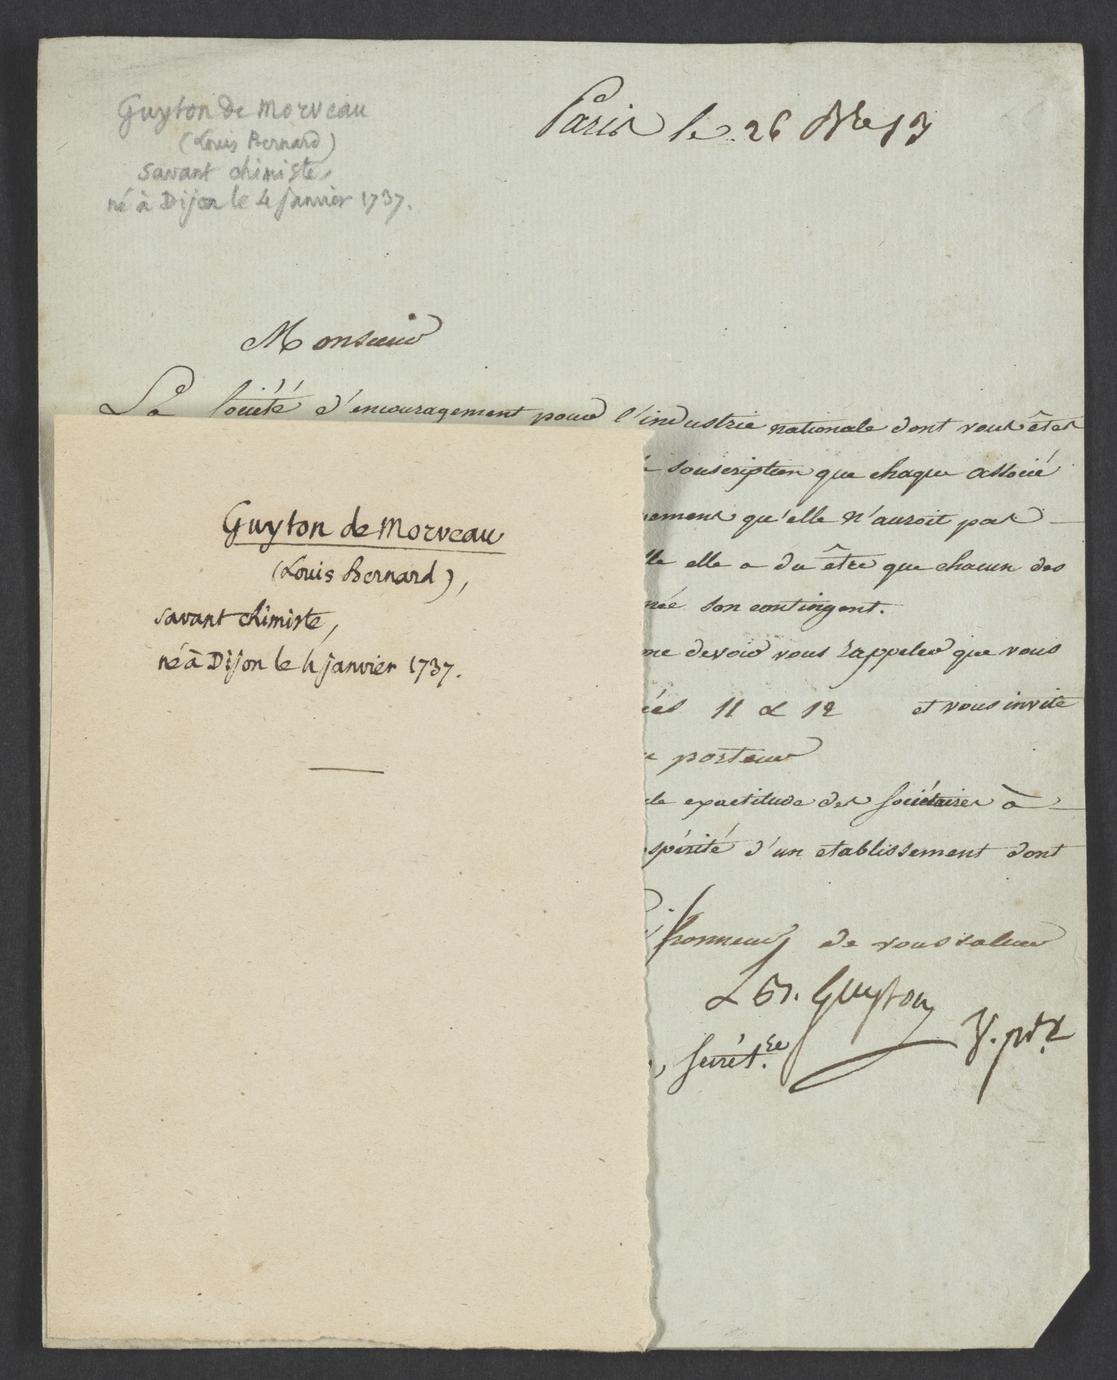 Guyton de Morveau
(Louis Bernard)
savant chimiste,
né à Dijon le 4 janvier 1737.
Paris le 26 Bre 13
Monsieur
La Société d'encouragement pour l'industrie nationale dont vous êtes
souscription que chaque associé
qu'elle n'auroit pas
elle a du être que chacun des
son contingent.
devoir vous rappeler que vous
11 & 12 et vous invite
porteur
exactitude des Sociétaires à
d'un etablissement dont
l'honneur de vous saluer
L B. Guyton
V. pdt
Secrét.re
Guyton de Morveau
(Louis Bernard),
savant chimiste,
né à Dijon le 4 janvier 1737.